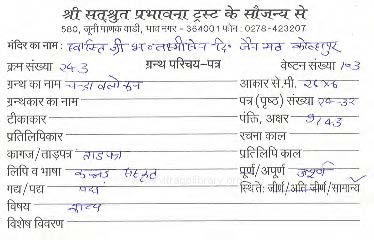 श्री सत्श्रुत प्रभावना ट्रस्ट के सौजन्य से
580, जूनी माणक वाडी, भाव नगर - 364001 फोन : 0278-423207
मंदिर का नाम : स्वस्ति श्री लक्ष्मीसेन दि. जैन मठ कोल्हापुर
क्रम संख्या २८३ ग्रन्थ परिचय-पत्र वेष्टन संख्या १०३
ग्रन्थ का नाम आकार से.मी. २८x६
ग्रन्थकार का नाम पत्र (पृष्ठ) संख्या
टीकाकार पंक्ति, अक्षर
प्रतिलिपिकार रचना काल
कागज/ताड़पत्र ताडपत्र प्रतिलिपि काल
लिपि व भाषा कन्नड संस्कृत पूर्ण/अपूर्ण
गद्य/पद्य पद्य स्थिति: जीर्ण/अति जीर्ण/सामान्य
विषय काव्य
विशेष विवरण